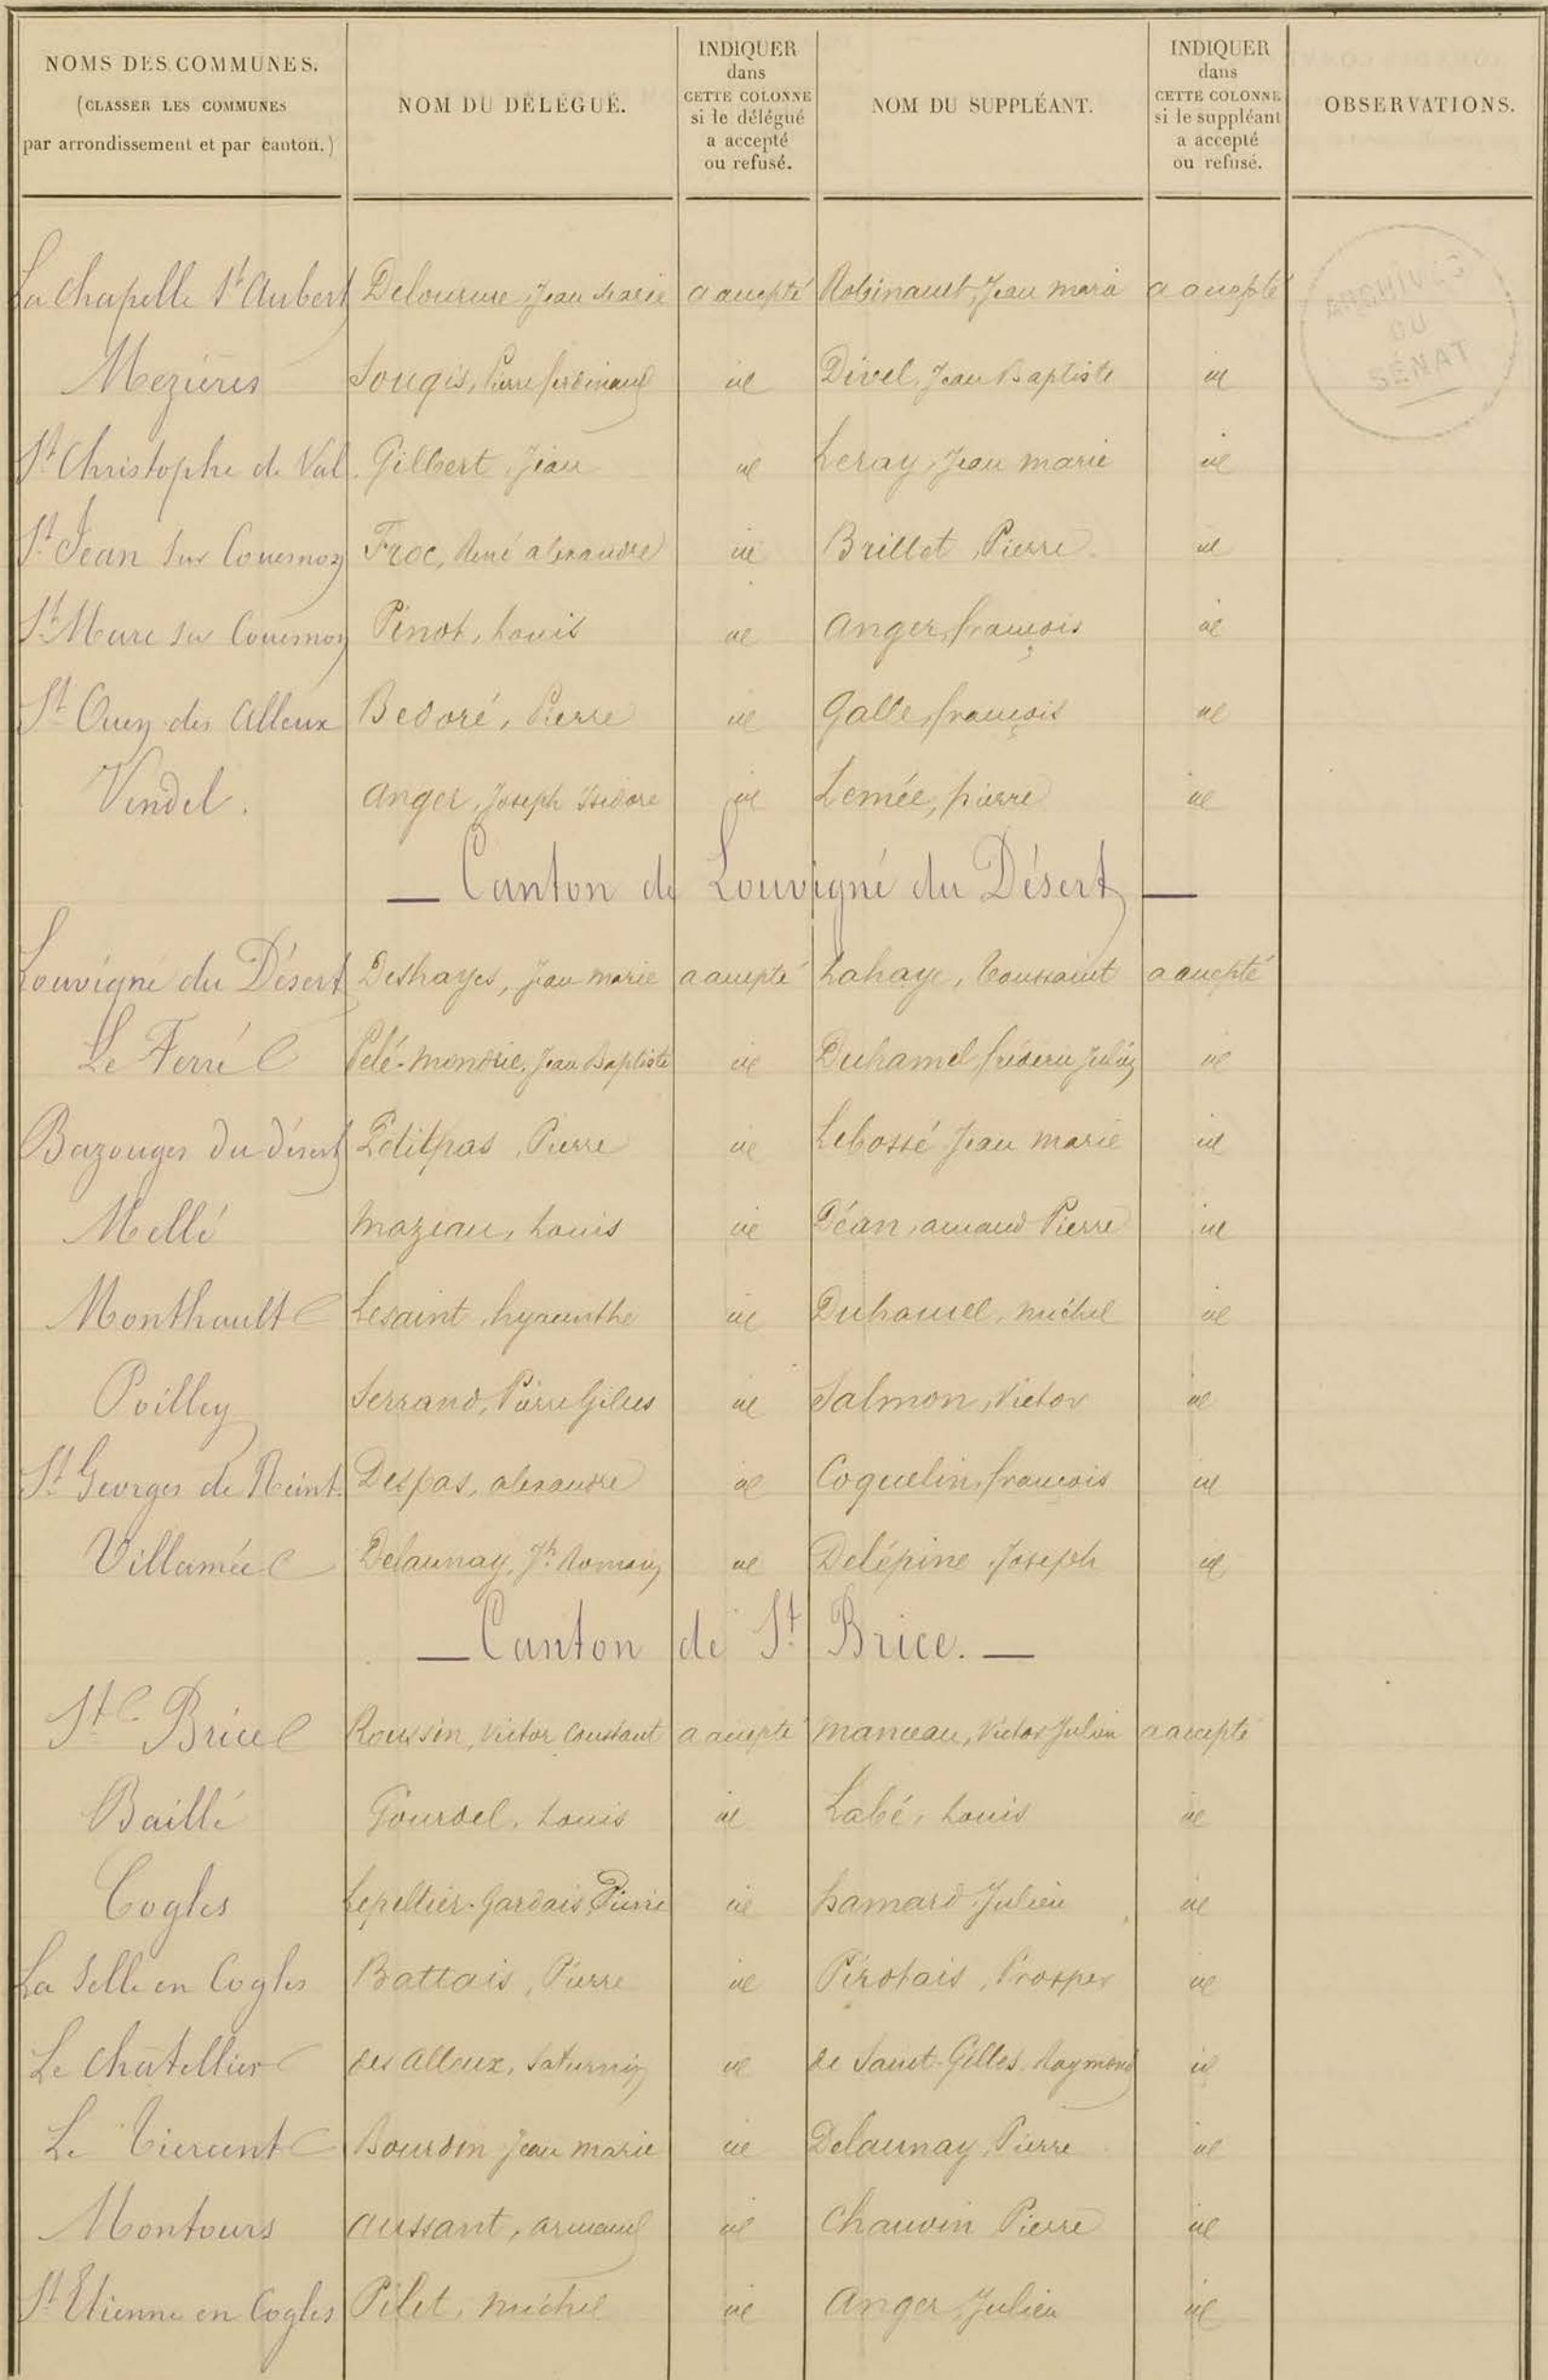 NOMS DES COMMUNES. (CLASSER LES COMMUNES par arrondissement et par canton.) NOM DU DÉLÉGUÉ. INDIQUER dans CETTE COLONNE si le délégué a accepté ou refusé. NOM DU SUPPLÉANT. INDIQUER dans CETTE COLONNE si le suppléant a accepté ou refusé. OBSERVATIONS.
ARCHIVES DU SÉNAT
La Chapelle St Aubert Delourme, Jean Marie a accepté Robinault, Jean marie a accepté
Mezières Sougis, Pierre ferdinand id Divel, Jean Baptiste id
St Christophe de Val. Gilbert, Jean id Leray, Jean marie id
St Jean sur Couesnon Froc, René alexandre id Brillet, Pierre id
St Marc sur Couesnon Pinot, Louis id anger, françois id
St Ouen des Alleux Bedoré, Pierre id Galle, françois id
Vendel. anger, Joseph Isidore id Lemée, pierre id
— Canton de Louvigné du Désert —
Louvigné du Désert Deshayes, Jean marie a accepté Lahaye, Toussaint a accepté
Le Ferré Pelé-mondrie, Jean Baptiste id Duhamel frédéric Julien id
Bazouges du désert Petitpas, Pierre id Lebossé Jean marie id
Mellé mazeau, Louis id Déan, amand Pierre id
Monthault Lesaint, hyacinthe id Duhamel, michel id
Poilley Serrand, Pierre Gilles id Salmon, Victor id
St Georges de Reint. Despas, alexandre id Coquelin, françois id
Villamée Delaunay, Jh Romain id Delépine, Joseph id
— Canton de St Brice. —
St Brice Roussin, Victor Constant a accepté manceau, Victor Julien a accepté
Baillé Gourdel, Louis id Labé, Louis id
Cogles Lepeltier-Gardais, Pierre id hamard, Julien id
La Selle en Cogles Battais, Pierre id Pirotais, Prosper id
Le Châtellier des alleux, Saturnin id de Saint-Gilles, Raymond id
Le Tiercent Bourdon Jean marie id Delaunay, Pierre id
Montours aussant, armand id Chauvin Pierre id
St Etienne en Cogles Pilet, michel id anger, Julien id